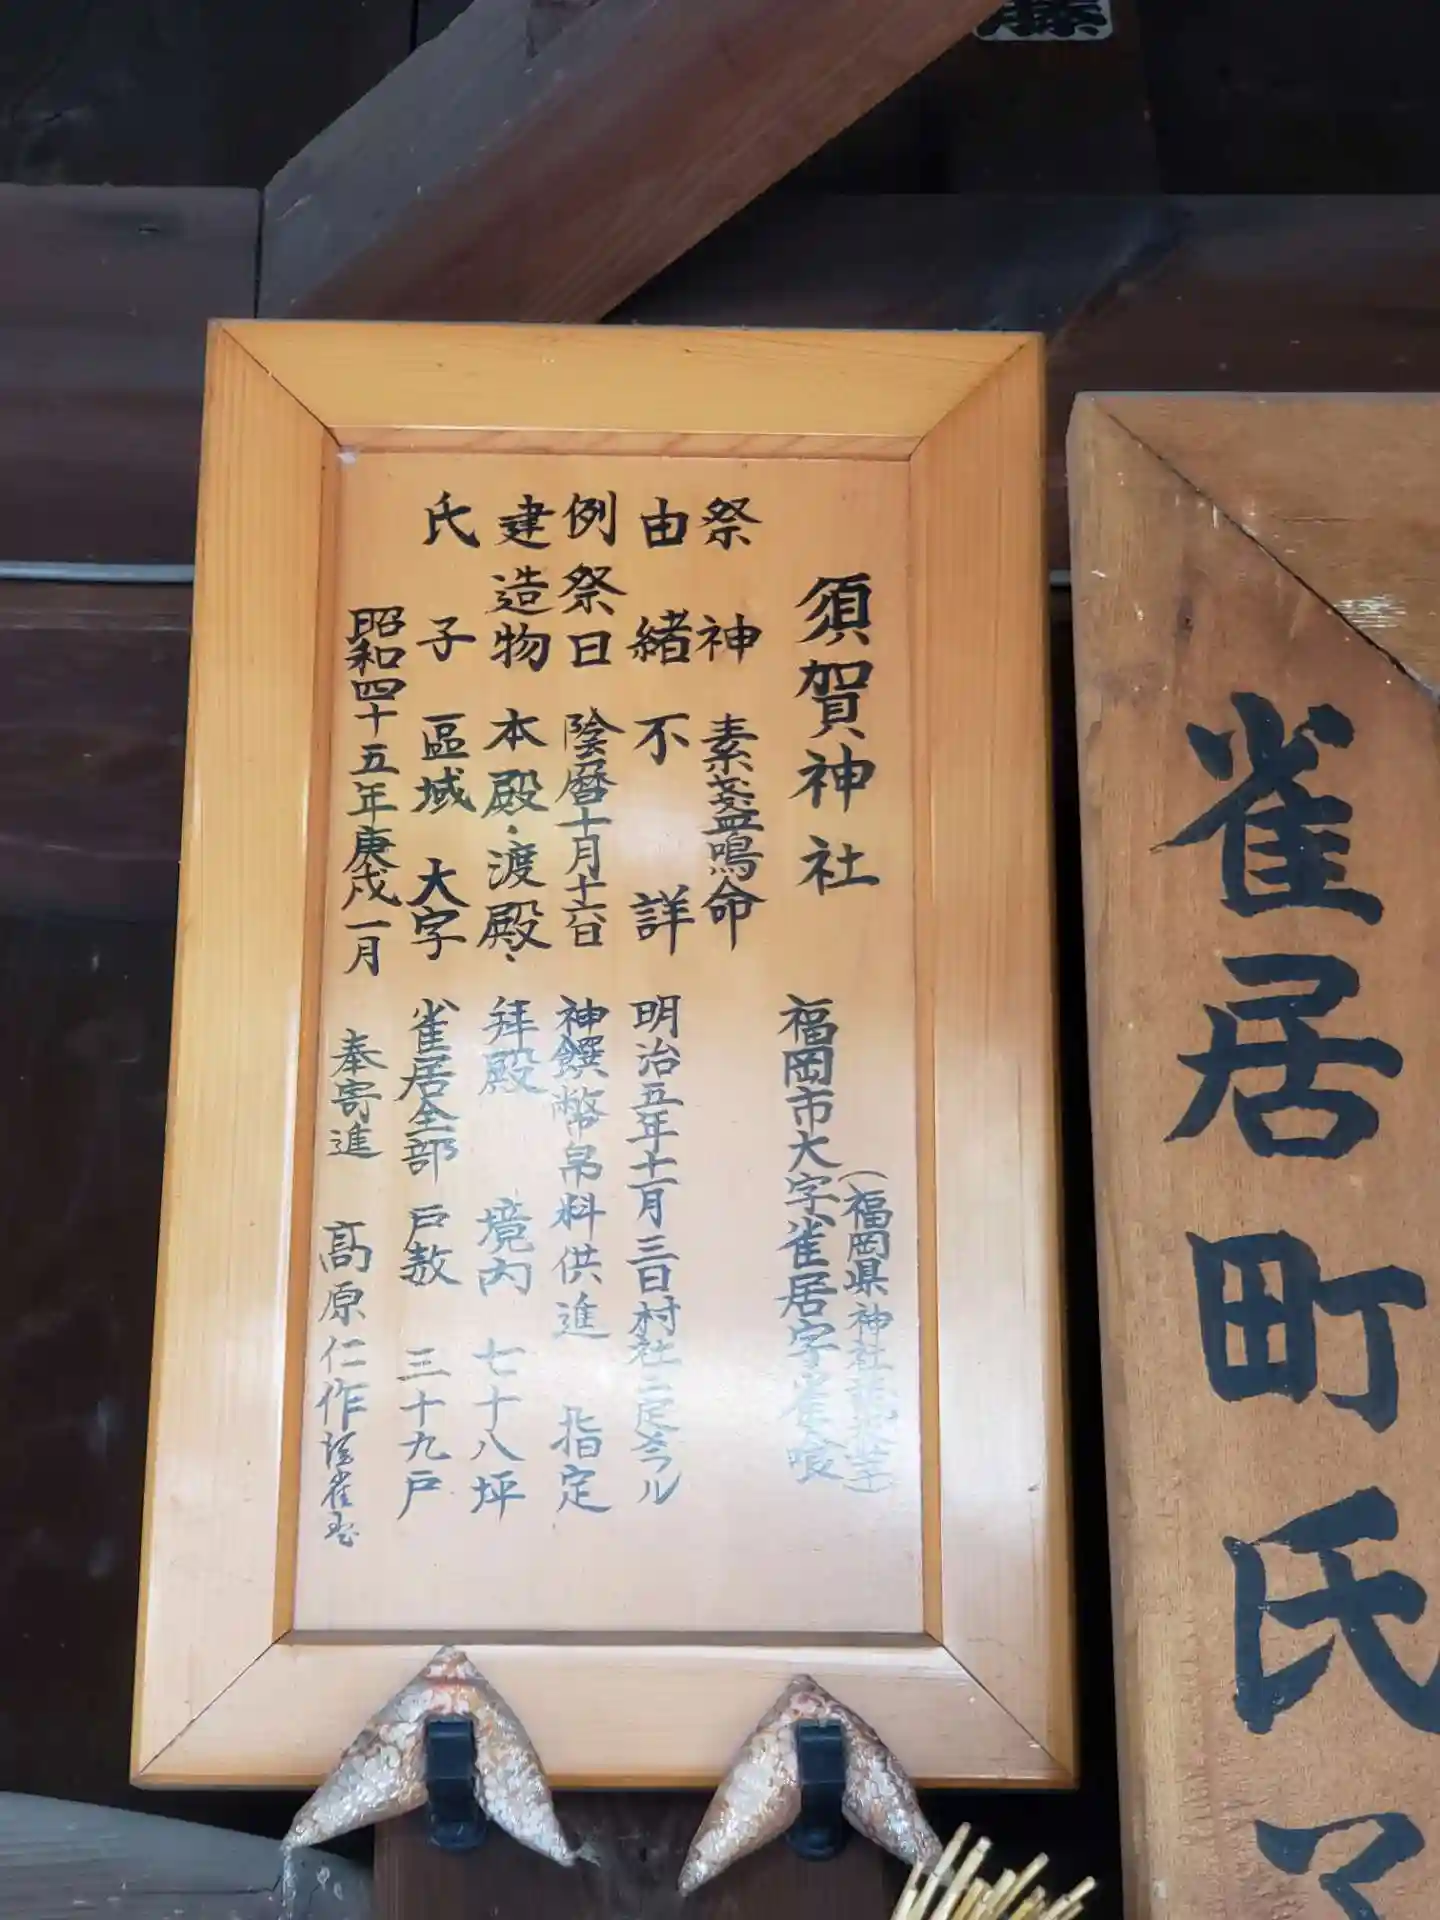 雀居町氏
須賀神社 福岡市大字雀居字雀喰
(福岡県神社
祭神 素盞嗚命
由緒 不詳 明治五年十一月三日村社ニ定メラル
例祭日 陰暦十月十六日 神饌幣帛料供進 指定
建造物 本殿・渡殿・拜殿 境内 七十八坪
氏子 區域 大字 雀居全部 戸数 三十九戸
昭和四十五年庚戌一月 奉寄進 髙原仁作
藤